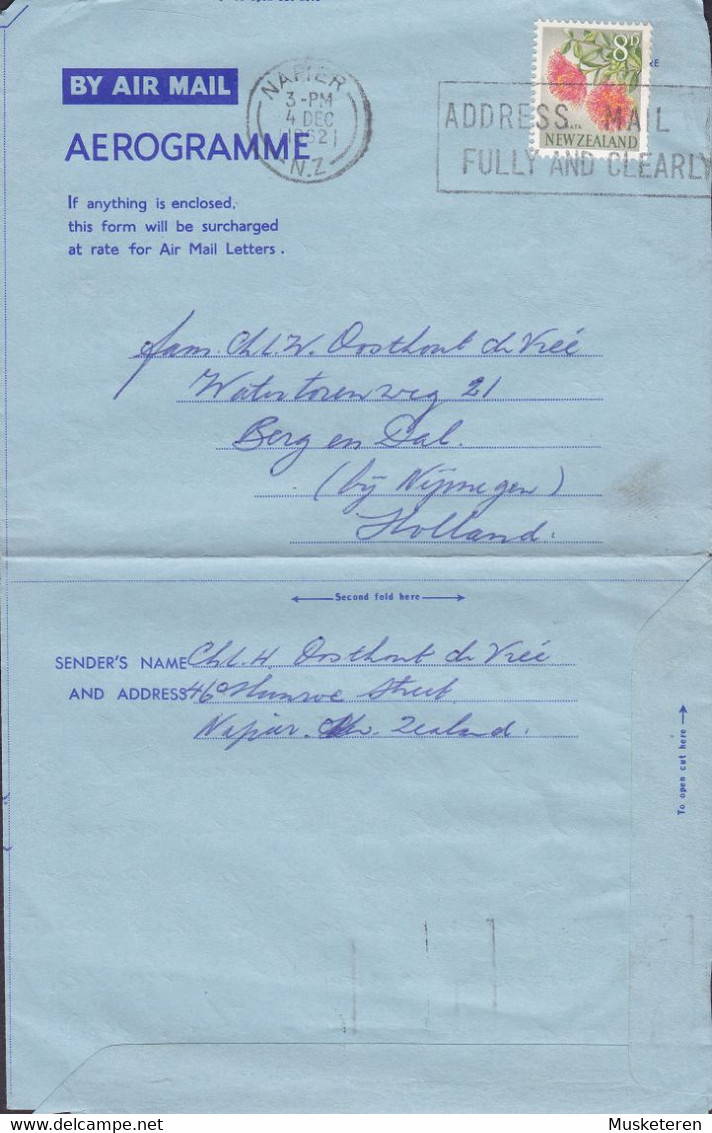 BY AIR MAIL
AEROGRAMME
If anything is enclosed,
this form will be surcharged
at rate for Air Mail Letters.
NAPIER
3-PM
4 DEC
1962
N.Z
8D
RE
ATA
NEW ZEALAND
ADDRESS MAIL
FULLY AND CLEARLY
fam. Ch.L.W. Oosthout de Vrée
Watertorenweg 21
Berg en Dal.
(bij Nijmegen)
Holland.
Second fold here
SENDER'S NAME Ch.L.H. Oosthout de Vrée
AND ADDRESS 46 Munroe Street
Napier. New Zealand.
To open cut here
www.delcampe.net Musketeren